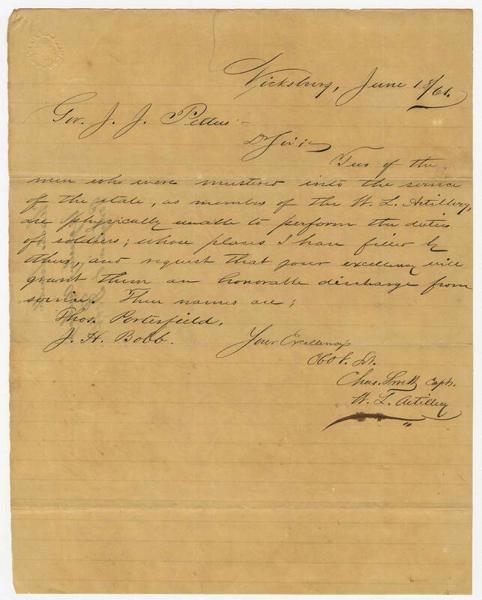 Vicksburg, June 18/61.
Gov. J. J. Pettus
Dr Sir;
Two of the
men who were mustered into the service
of the state, as members of the W. L. Artillery,
are physically unable to perform the duties
of soldiers; whose places I have filled by
others, and request that your excellency will
grant them an honorable discharge from
service. Their names are;
Thos. Porterfield.
J. H. Bobb.
Your Excellency's
Obt. St.
Chas. Smith Capt.
W. L. Artillery